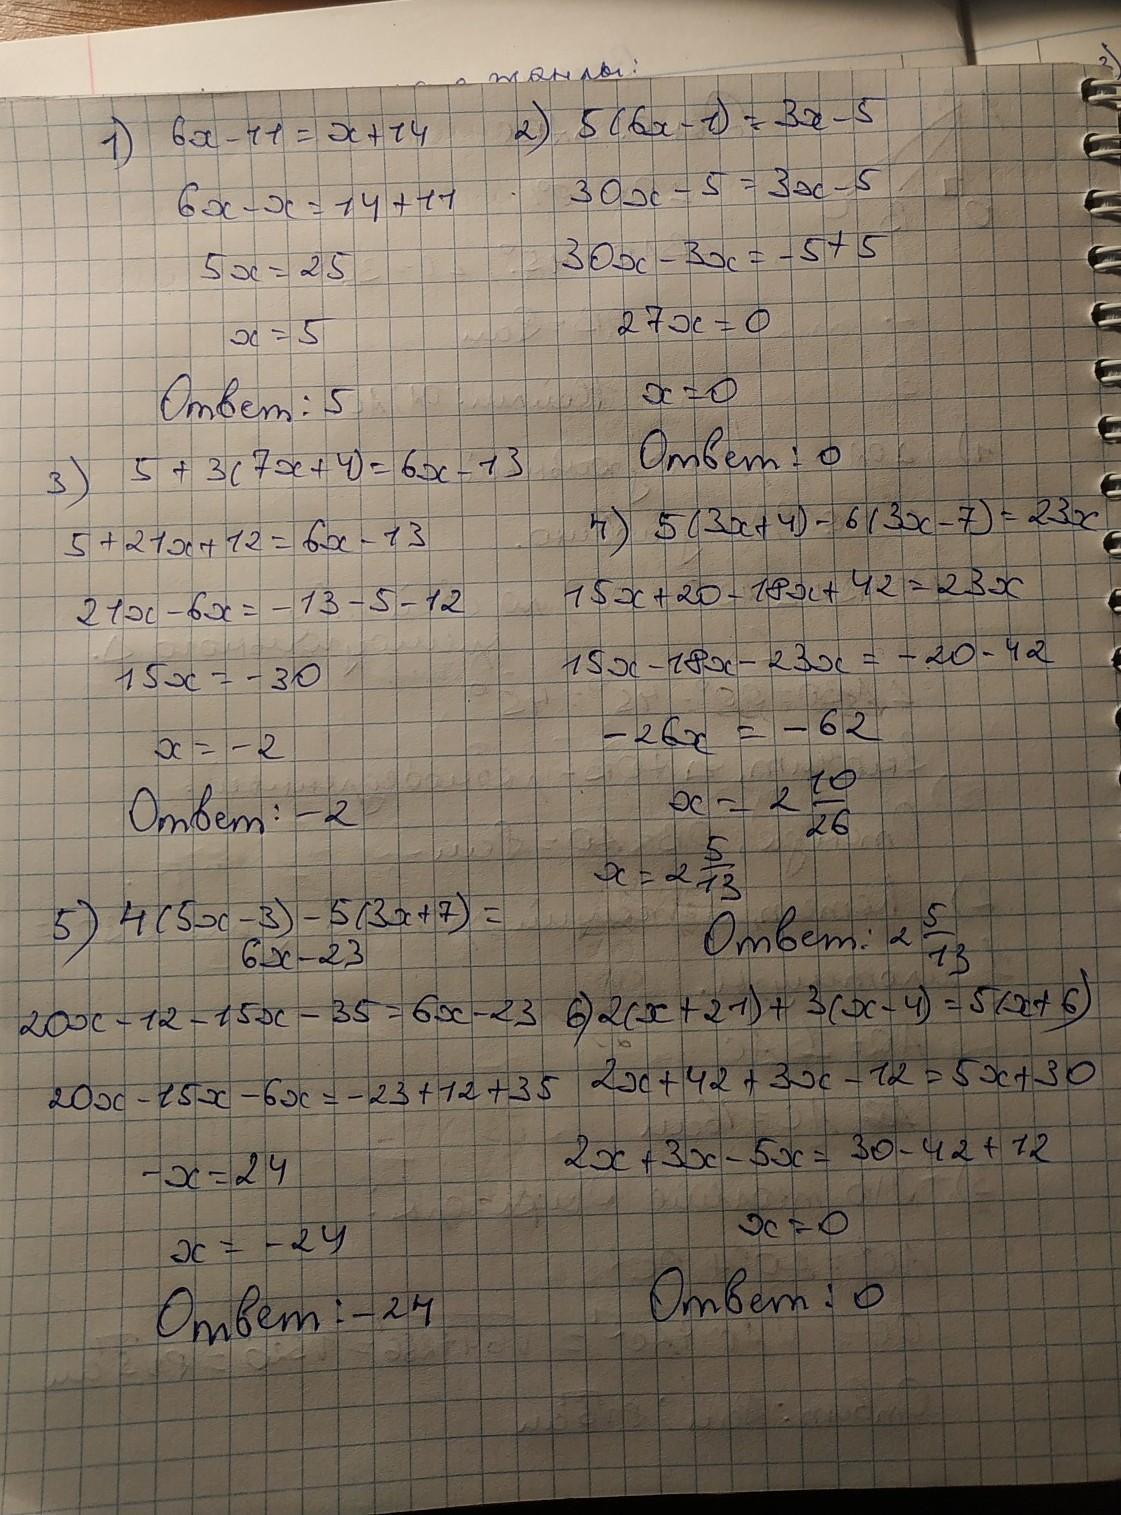 1) 6x-11=x+14
6x-x=14+11
5x=25
x=5
Ответ: 5
2) 5(6x-1)=3x-5
30x-5=3x-5
30x-3x=-5+5
27x=0
x=0
Ответ: 0
3) 5+3(7x+4)=6x-13
5+21x+12=6x-13
21x-6x=-13-5-12
15x=-30
x=-2
Ответ: -2
4) 5(3x+4)-6(3x-7)=23x
15x+20-18x+42=23x
15x-18x-23x=-20-42
-26x=-62
x=2 10/26
x=2 5/13
Ответ: 2 5/13
5) 4(5x-3)-5(3x+7)=
6x-23
20x-12-15x-35=6x-23
20x-15x-6x=-23+12+35
-x=24
x=-24
Ответ: -24
6) 2(x+21)+3(x-4)=5(x+6)
2x+42+3x-12=5x+30
2x+3x-5x=30-42+12
x=0
Ответ: 0